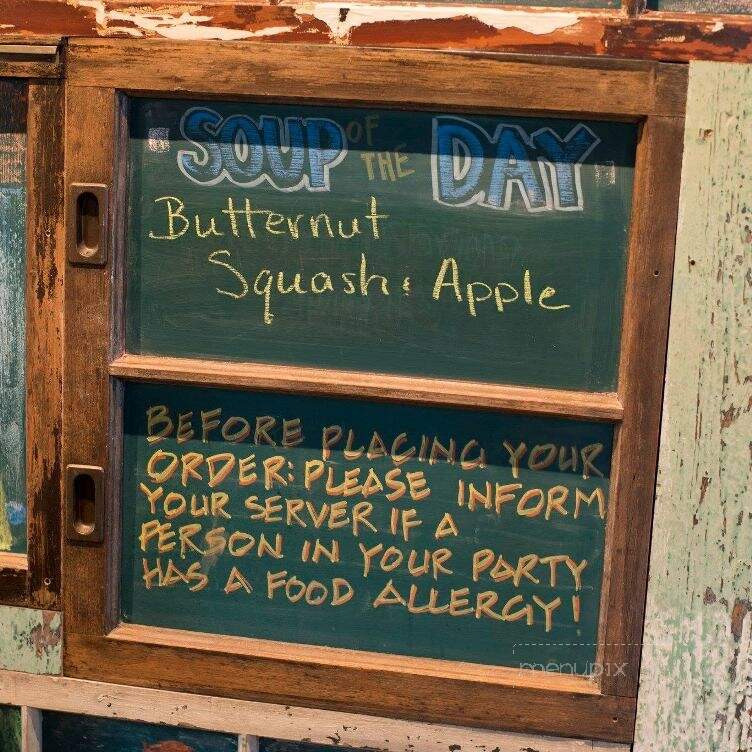 SOUP OF THE DAY
Butternut
Squash & Apple
BEFORE PLACING YOUR
ORDER: PLEASE INFORM
YOUR SERVER IF A
PERSON IN YOUR PARTY
HAS A FOOD ALLERGY!
menupix